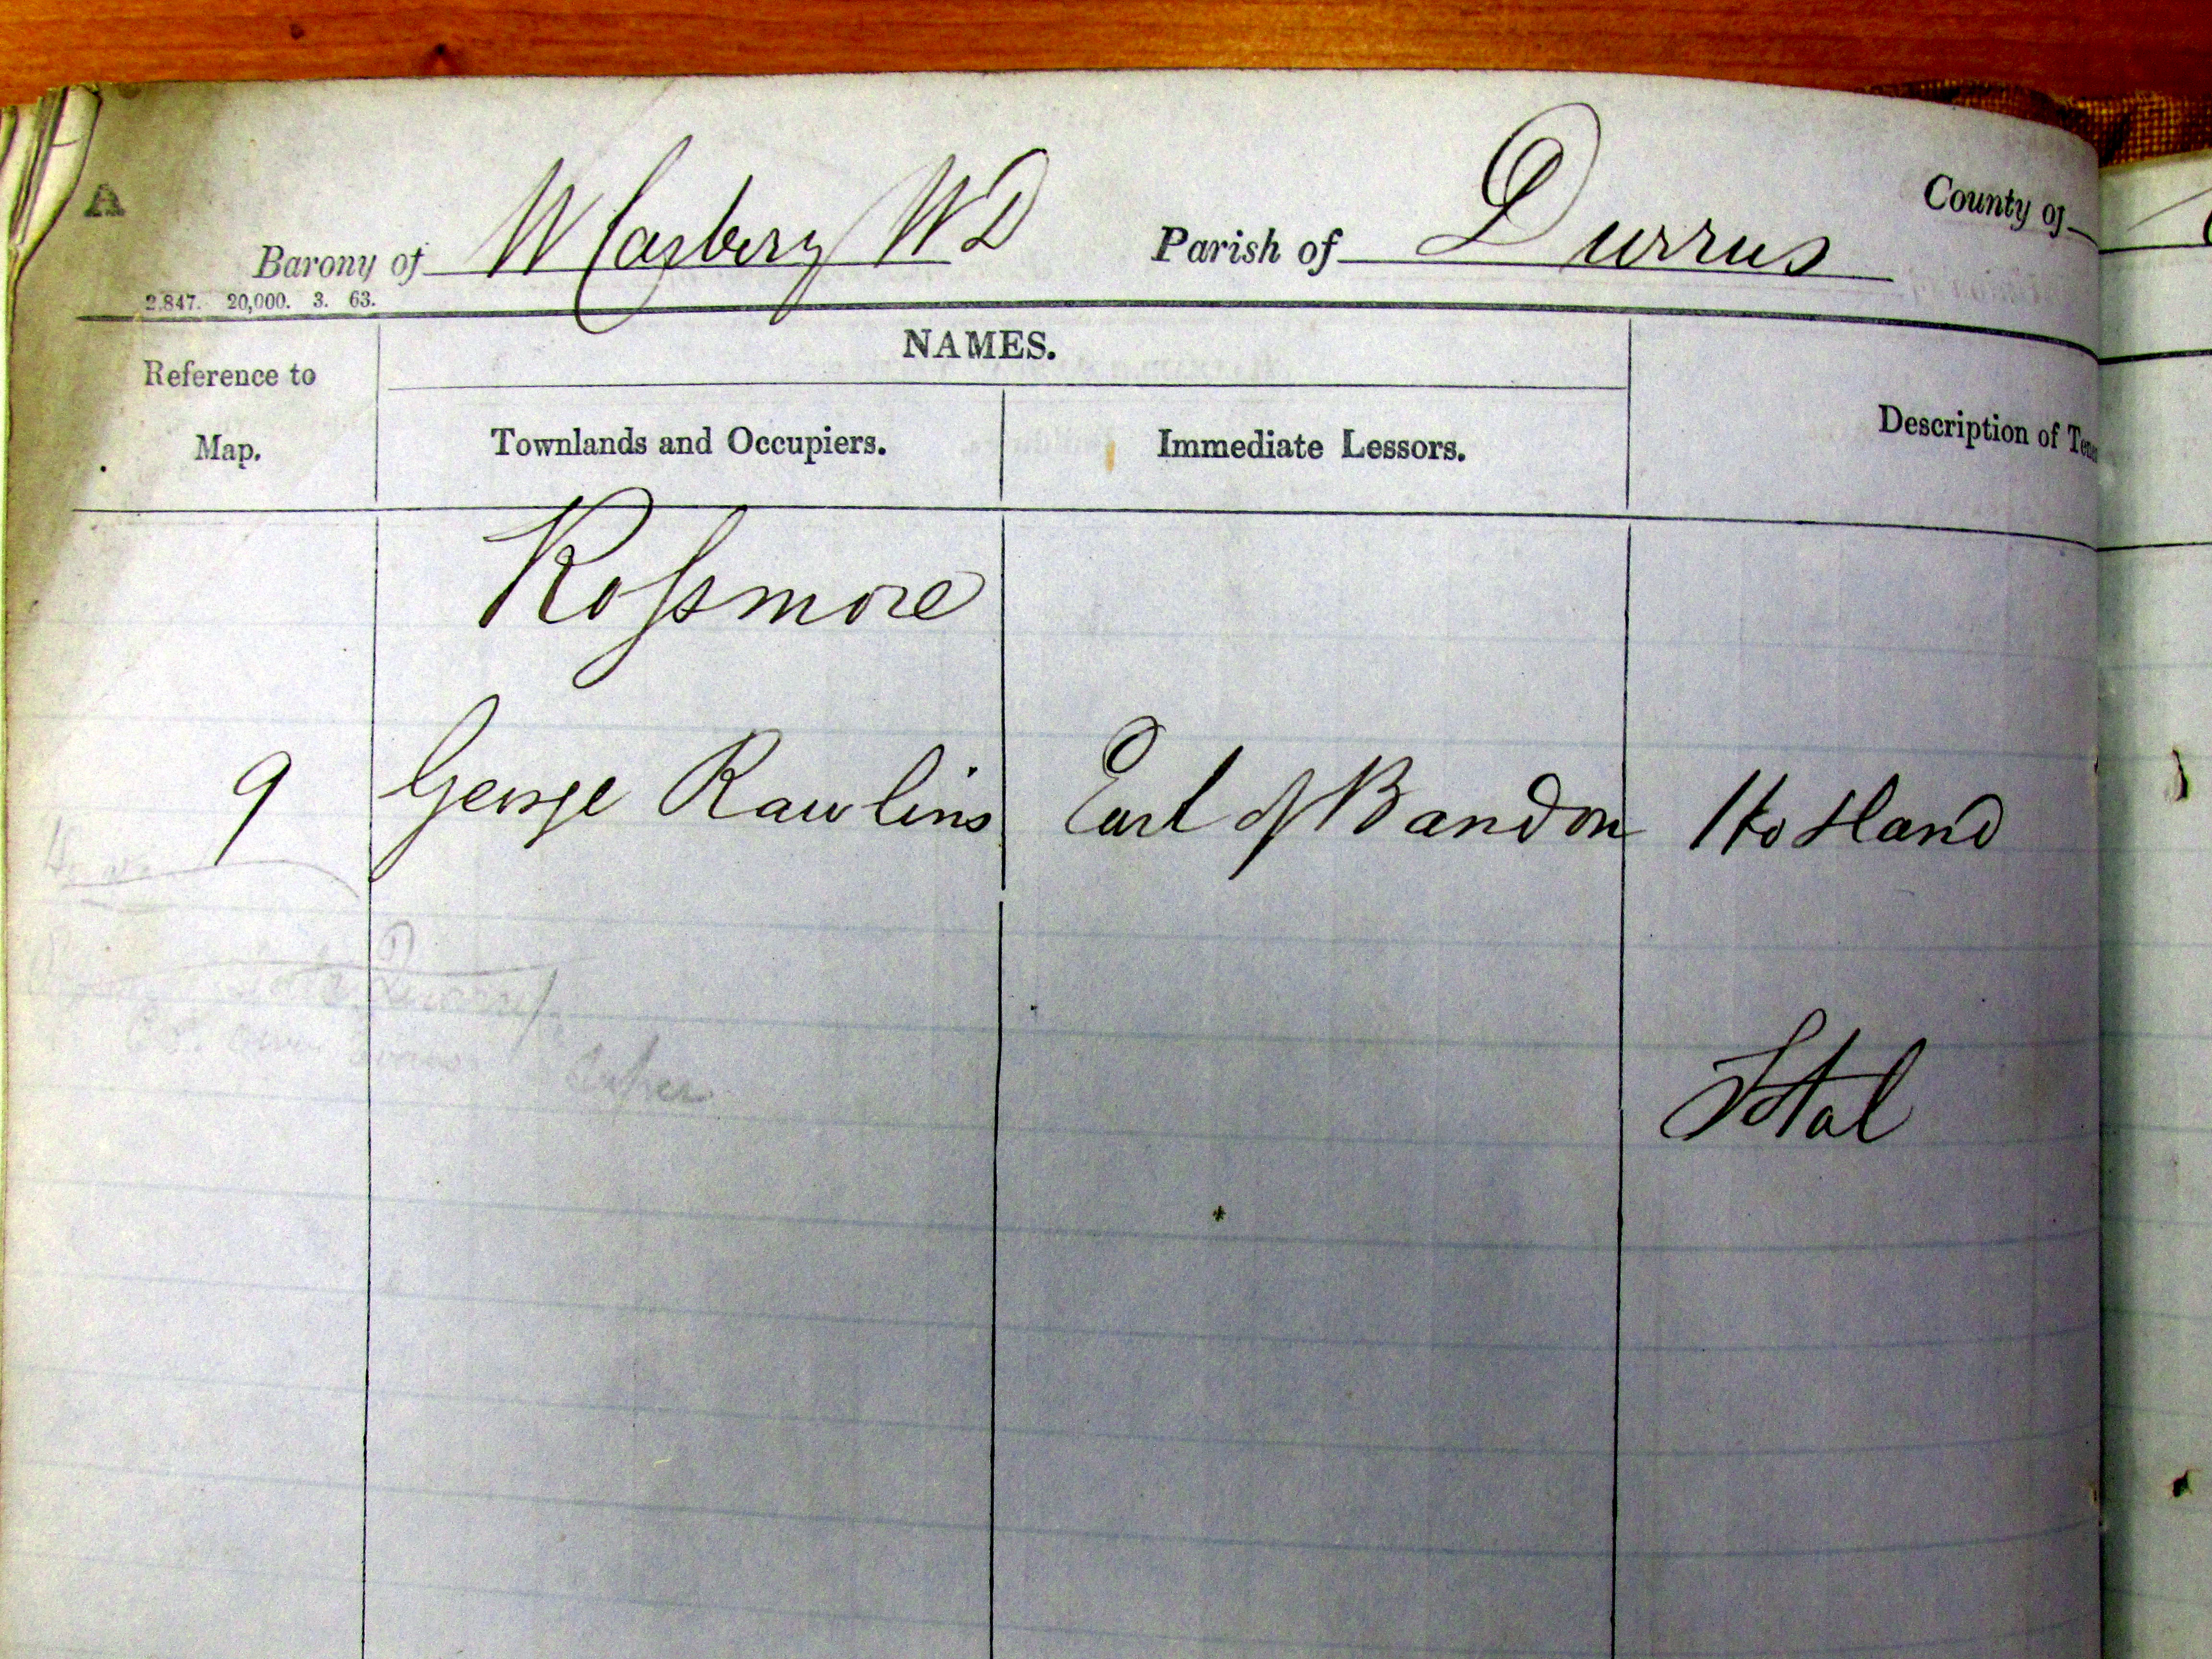 A
Barony of W Carbery WD Parish of Durrus County of
2.847. 20,000. 3. 63.
NAMES.
Reference to Map.
Townlands and Occupiers.
Immediate Lessors.
Description of Ten
Rossmore
9 George Rawlins Earl of Bandon Ho & Land
Total